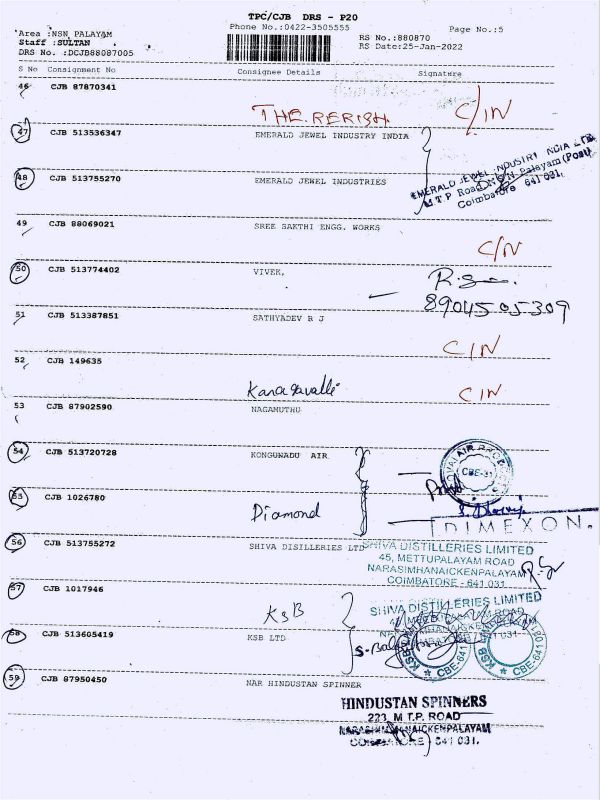 TPC/CJB DRS - P20
Phone No.:0422-3505555
Page No.:5
Area :NSN PALAYAM
Staff :SULTAN
DRS No. :DCJB88087005
RS No.:880870
RS Date:25-Jan-2022
S No Consignment No Consignee Details Signature
46 CJB 87870341
THE.RERISH C/IN
47 CJB 513536347 EMERALD JEWEL INDUSTRY INDIA
EMERALD JEWEL INDUSTRY INDIA LTD
M.T.P Road, N.S.N. Palayam (Post)
Coimbatore 641 031.
48 CJB 513755270 EMERALD JEWEL INDUSTRIES
49 CJB 88069021 SREE SAKTHI ENGG. WORKS
C/N
50 CJB 513774402 VIVEK,
8904505309
51 CJB 513387851 SATHYADEV R J
CIN
52 CJB 149635
Kanagavalli CIN
53 CJB 87902590 NAGAMUTHU
54 CJB 513720728 KONGUNADU AIR
CBE-31
55 CJB 1026780
Diamond
DIMEXON.
56 CJB 513755272 SHIVA DISILLERIES LTD
SHIVA DISTILLERIES LIMITED
45, METTUPALAYAM ROAD
NARASIMHANAICKENPALAYAM
COIMBATORE - 641 031
57 CJB 1017946
KSB
SHIVA DISTILLERIES LIMITED
45, METTUPALAYAM ROAD
NARASIMHANAICKENPALAYAM
58 CJB 513605419 KSB LTD
59 CJB 87950450 NAR HINDUSTAN SPINNER
HINDUSTAN SPINNERS
223, M T.P. ROAD
NARASIMHANAICKENPALAYAM
COIMBATORE - 641 031.